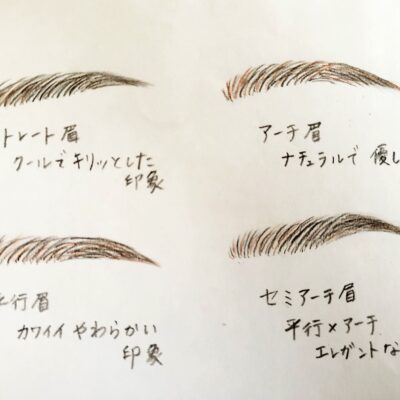 トレート眉
クールでキリッとした
印象
アーチ眉
ナチュラルで 優し
行眉
カワイイ やわらかい
印象
セミアーチ眉
平行×アーチ
エレガントな